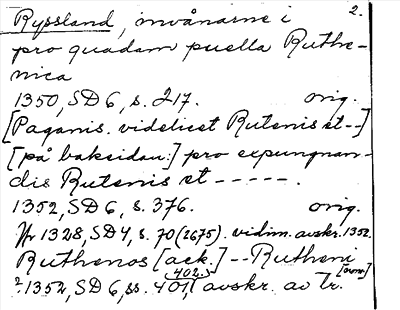 Ryssland, invånarne i 2.
pro quadam puella Ruthe-
nica
1350, SD 6, s. 217. orig.
[Paganis. videlicet Rutenis et --]
[på baksidan:] pro expungnan-
dis Rutenis et -----.
1352, SD 6, s. 376. orig.
Yr 1328, SD 4, s. 70 (2675). vidim. avskr. 1352.
Ruthenos [ack.] -- Rutheni [nom.]
?1352, SD 6, ss. 401, 402. avskr. av tr.